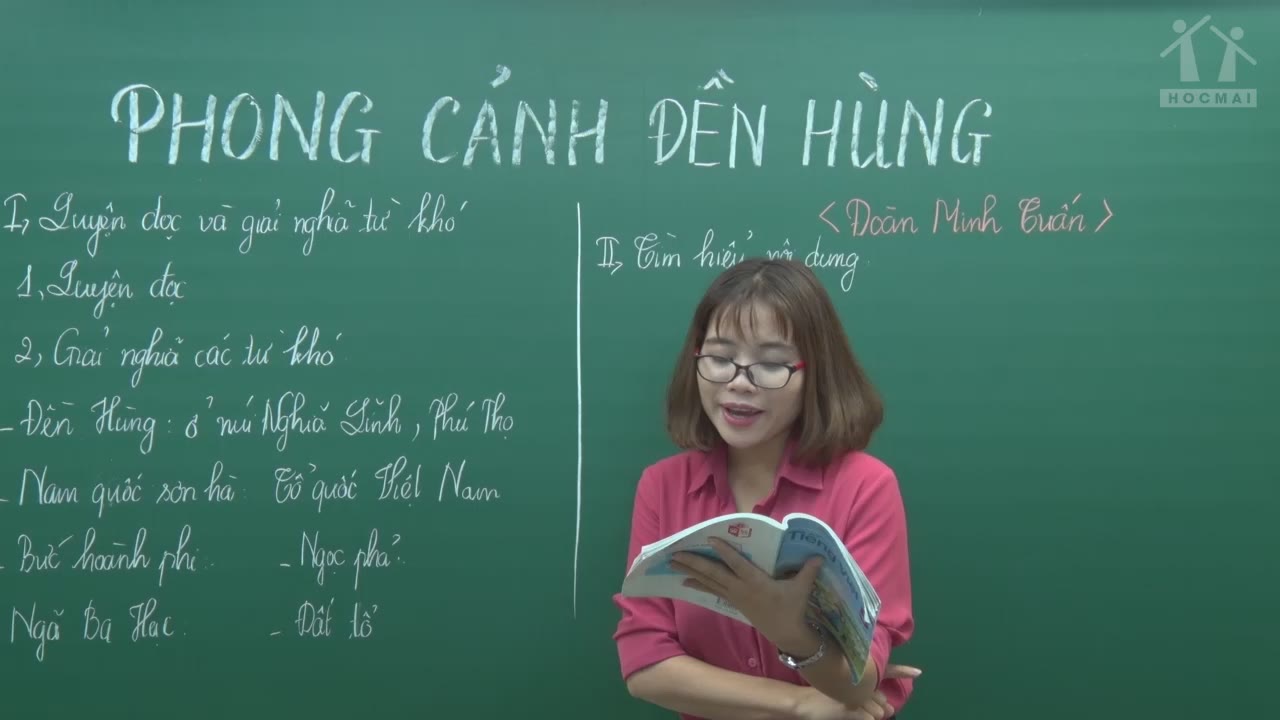 HOCMAI
PHONG CẢNH ĐỀN HÙNG
<Đoàn Minh Tuấn>
I, Luyện đọc và giải nghĩa từ khó
1, Luyện đọc
2, Giải nghĩa các từ khó
- Đền Hùng: ở núi Nghĩa Lĩnh, Phú Thọ
- Nam quốc sơn hà: Tổ quốc Việt Nam
- Bức hoành phi: - Ngọc phả:
Ngã Ba Hạc: - Đất tổ
II, Tìm hiểu nội dung
Tiếng Việt